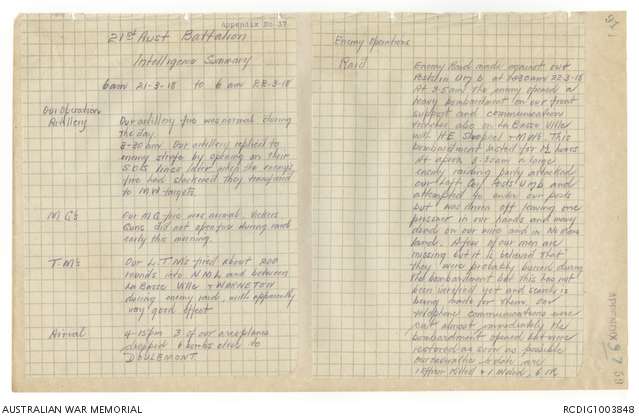 Appendix No 37
21st Aust Battalion
Intelligence Summary
6am 21-3-18 to 6am 22-3-18
Our Operation
Artillery
Our artillery fire was normal during
the day.
Our artillery replied to
enemy strafe by opening on their
S.O.S. lines later when the enemys
fire had slackened they
to M.W. targets.
M G's
Our M.G fire was normal. Vickers
Guns did not operate during raid
early this morning.
T. M's
Our L.T.Ms fired about 200
rounds into N.M.L and between
La Basse Ville & WARNETON
during enemy raid, with apparently
very good effect
4-15pm 3 of our aeroplanes
dropped 6 bombs close to
DEULEMONT.
Enemy Operations
Raid
Enemy Raid made against our
Posts in
At the enemy opened a
heavy bombardment on our front
support and communication
trenches also on La Basse Ville
with H.E. Shrapnel & M.W's. This
bombardment lasted for 1½ hours.
At a large
enemy raiding party attacked
our Left Coy Posts and
attempted to enter our posts
but was driven off leaving one
prisoner in our hands and many
dead on our wire and in No mans
land. A few of our men are
missing but it is believed that
they were probably buried during
the bombardment but this has not
been verified yet and search is
being made for them. Our
telephone communications were
cut almost immediately the
bombardment opened but were
restored as soon as possible
to date are
1 Officer Killed & 1 Wded, 6. OR
appendix 37
AUSTRALIAN WAR MEMORIAL
RCDIG1003848